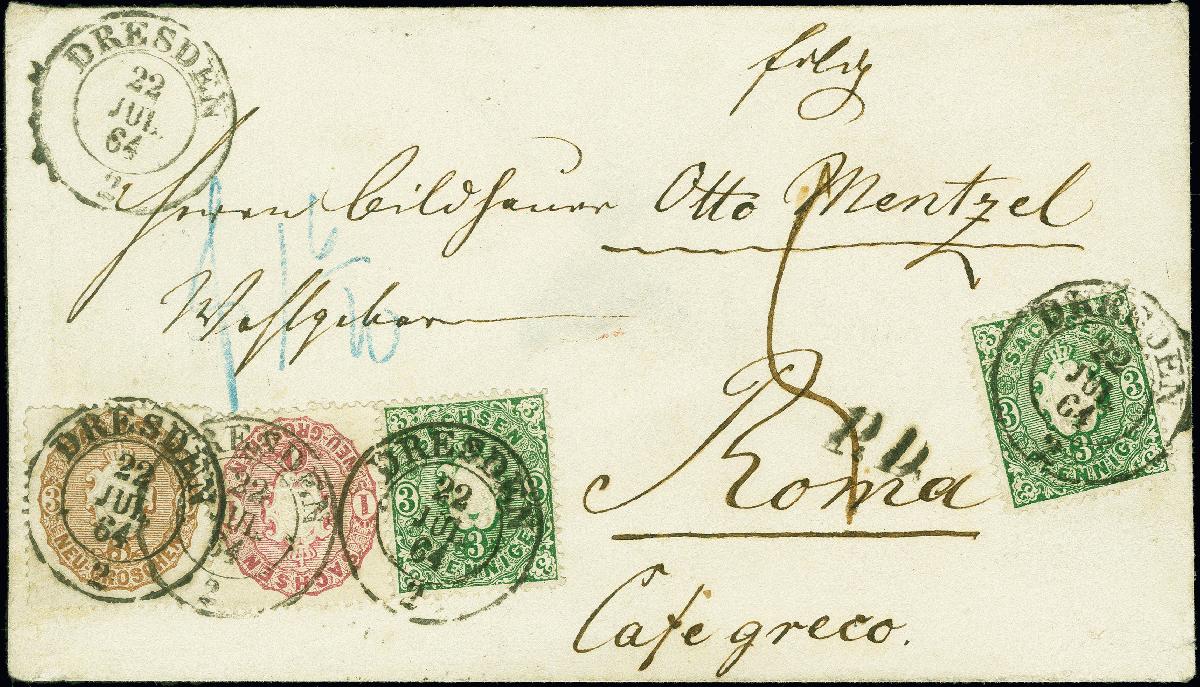 DRESDEN
22
JUL
64
2
Herrn Bildhauer Otto Mentzel
Wohlgeboren
Roma
Cafe greco.
P.D.
DRESDEN
22
JUL
64
2
3
NEU-GROSCHEN
3
DRESDEN
22
JUL
64
2
1
NEU-GROSCHEN
SACHSEN
DRESDEN
22
JUL
64
2
SACHSEN
3
3
3
PFENNIGE
DRESDEN
22
JUL
64
2
SACHSEN
3
3
3
PFENNIGE